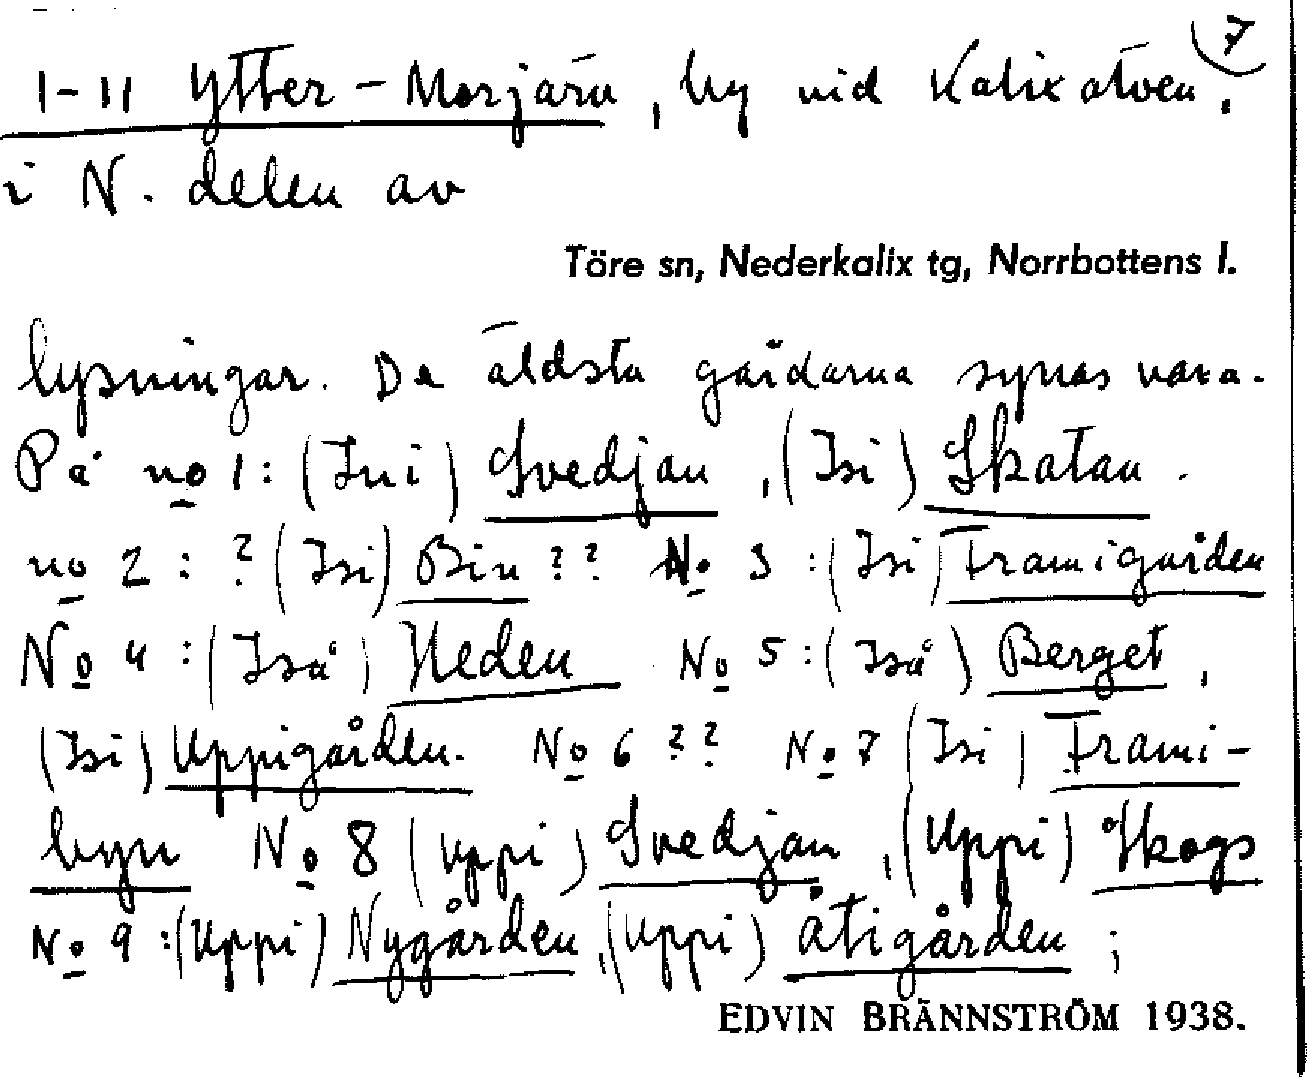 7
1-11 Ytter-Morjärv, by vid Kalixälven,
i N. delen av
Töre sn, Nederkalix tg, Norrbottens l.
lysningar. De äldsta gårdarna synas vara.
På no 1: (Ini) Svedjan, (Isi) Skatan.
no 2: ? (Isi) Bin ?? No 3: (Isi) Framigården
No 4: (Iså) Heden No 5: (Iså) Berget,
(Isi) Uppigården. No 6 ?? No 7 (Isi) Frami-
byn No 8 (Uppi) Svedjan, (Uppi) Skogs
No 9: (Uppi) Nygården, (Uppi) Åtigården;
EDVIN BRÄNNSTRÖM 1938.